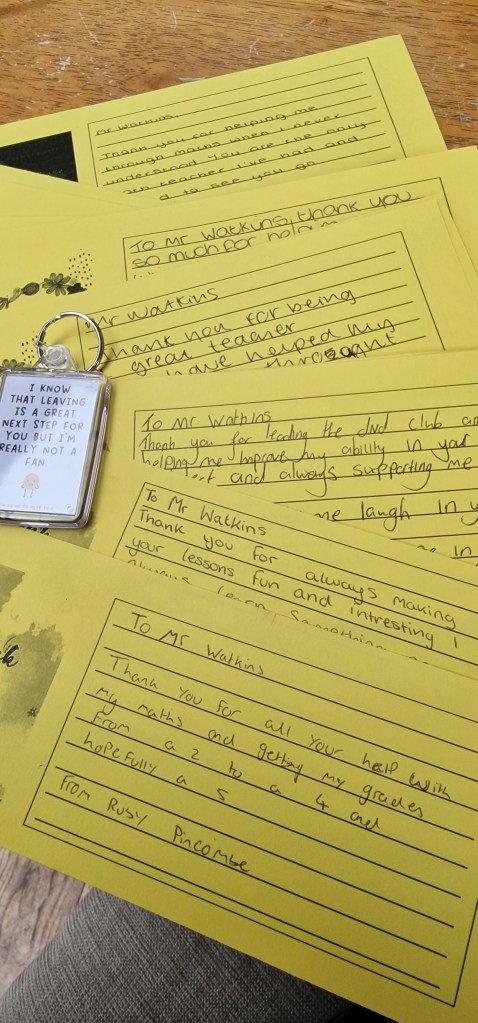 Mr Watkins,
Thank you for helping me
through maths when I never
understood. You are the only
teacher I've had and
to see you go
To Mr Watkins, thank you
so much for
Mr Watkins
Thank you for being
great teacher
have helped my
throught
I KNOW
THAT LEAVING
IS A GREAT
NEXT STEP FOR
YOU BUT I'M
REALLY NOT A
FAN
To Mr Watkins
Thank you for leading the dnd club an
helping me improve my ability in your
and always supporting me
me laugh in y
in
To Mr Watkins
Thank you for always making
your lessons fun and intresting I
always learn something
To Mr Watkins
Thank you for all your help with
my maths and getting my grades
from a 2 to a 4 and
hopefully a 5
from Rusy Pincombe